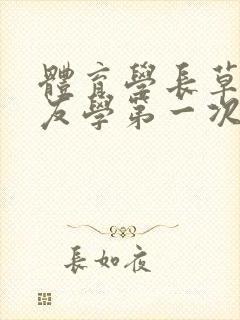 體育學長草
友學第一次
長如夜